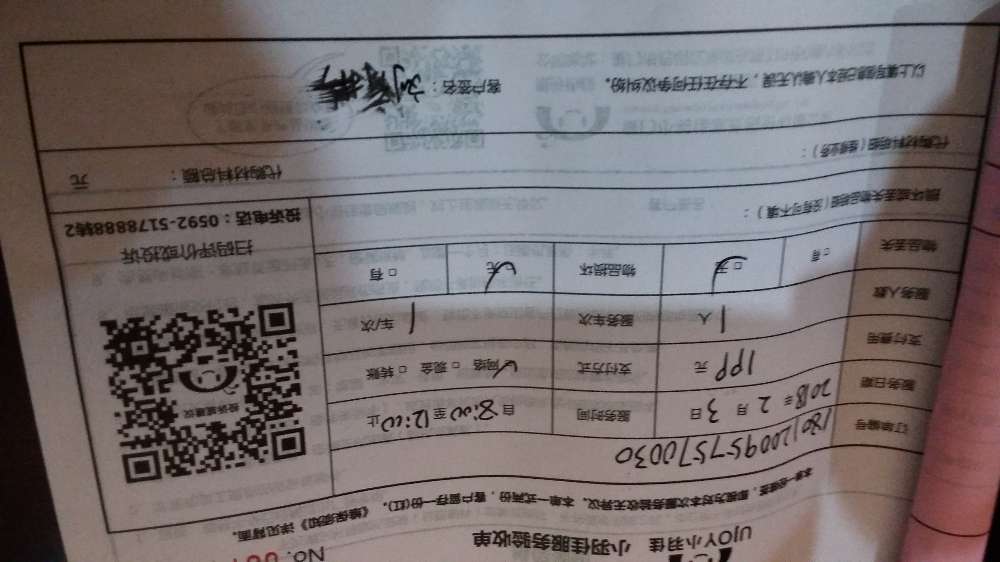 UJOY小羽佳 小羽佳服务验收单 No.
本单一经签署,即视为对本次服务验收无异议。本单一式两份,客户留存一份(红)。《维保须知》详见背面。
订单编号 1801200957570030
服务日期 2018年2月3日 服务时间 自8:00至12:00止
支付费用 199元 支付方式 网络 □现金 □转账
服务人数 1人 服务车次 1车/次
物品丢失 □有 □无 物品损坏 无 □有
投诉或建议
扫码评价或投诉
投诉电话:0592-5178888转2
损坏或丢失物品明细(没有可不填):
代购材料明细(维修业务):
代购材料总额: 元
以上填写信息已经本人确认无误,不存在任何争议纠纷。 客户签名: